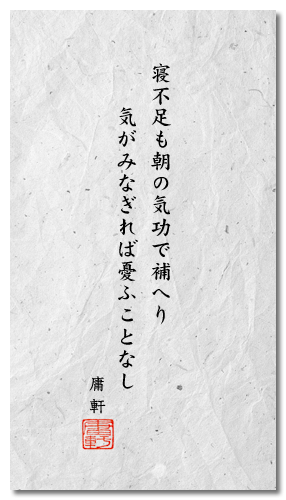 寝不足も朝の気功で補へり
気がみなぎれば憂ふことなし
庸軒